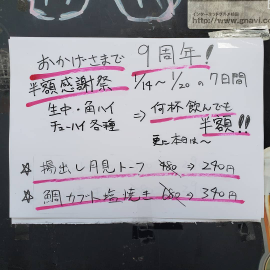 インターネットでラクラク予約
http://www.gnavi.com
おかげさまで 9周年!
半額感謝祭 1/14〜1/20の7日間
生中・角ハイ
チューハイ各種
⇒ 何杯飲んでも
半額!!
更に本日は〜
☆ 揚出し月見トーフ 480 ⇒ 240円
☆ 鯛カブト塩焼き 680 ⇒ 340円